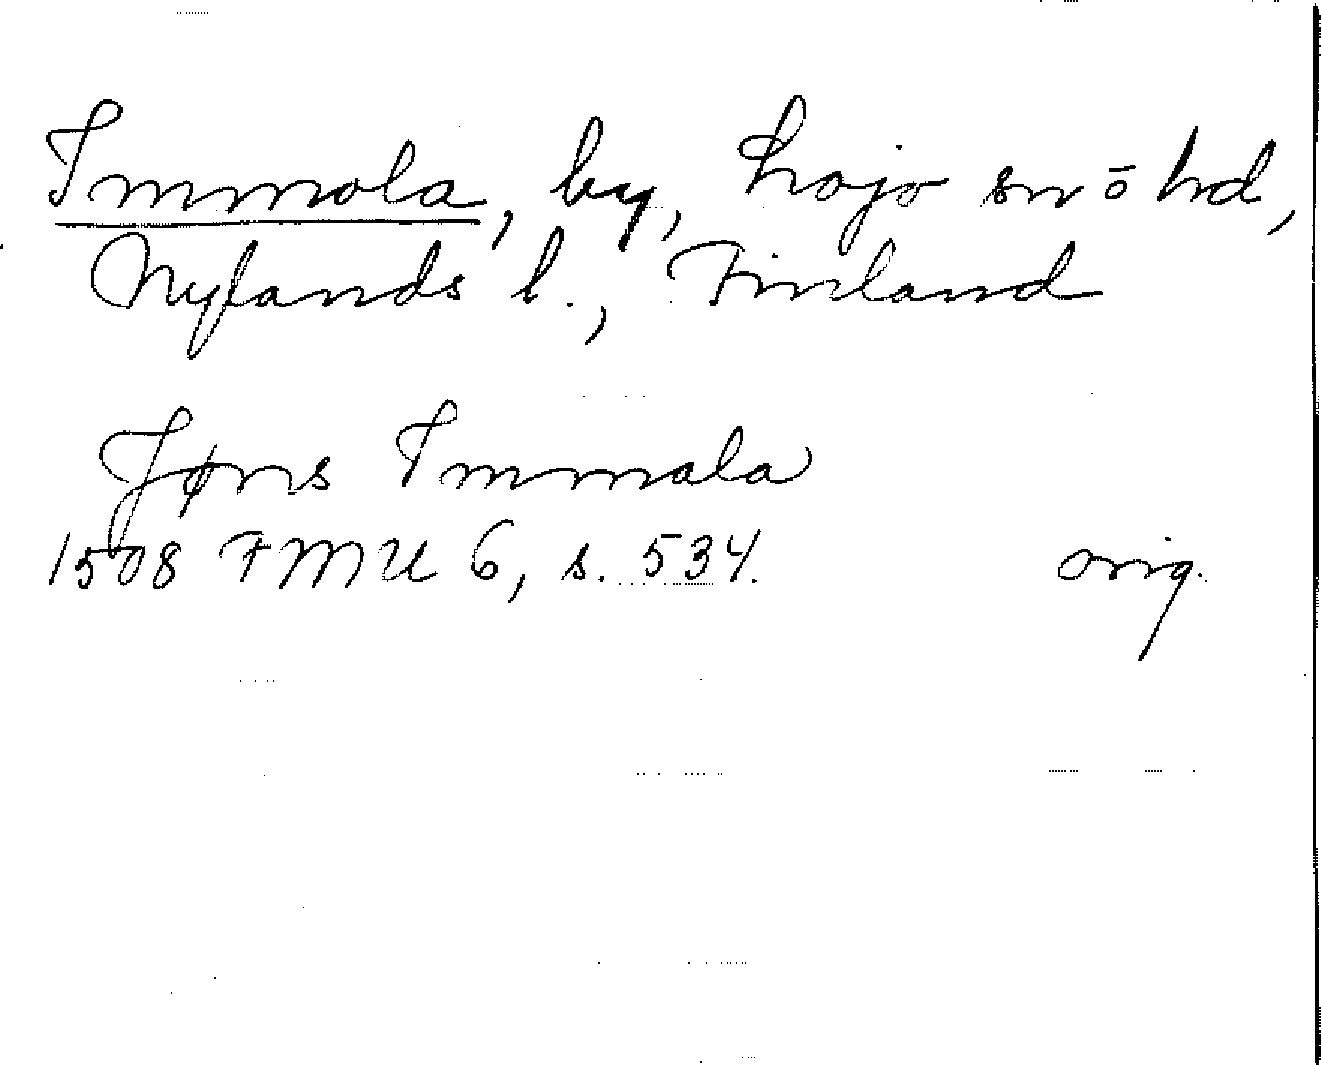 Immola, by, Lojo sn o hd,
Nylands l., Finland
Jøns Immala
1508 FMU 6, s. 534. orig.